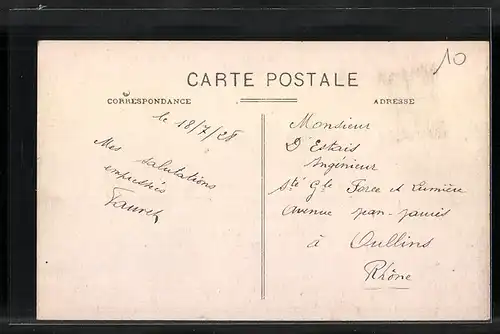 10
CARTE POSTALE
CORRESPONDANCE
ADRESSE
le 18/7/28
Mes salutations
empressées
Monsieur
D'Estais
Ingénieur
Sté Gle Force et Lumière
Avenue Jean-Jaurès
à Oullins
Rhône